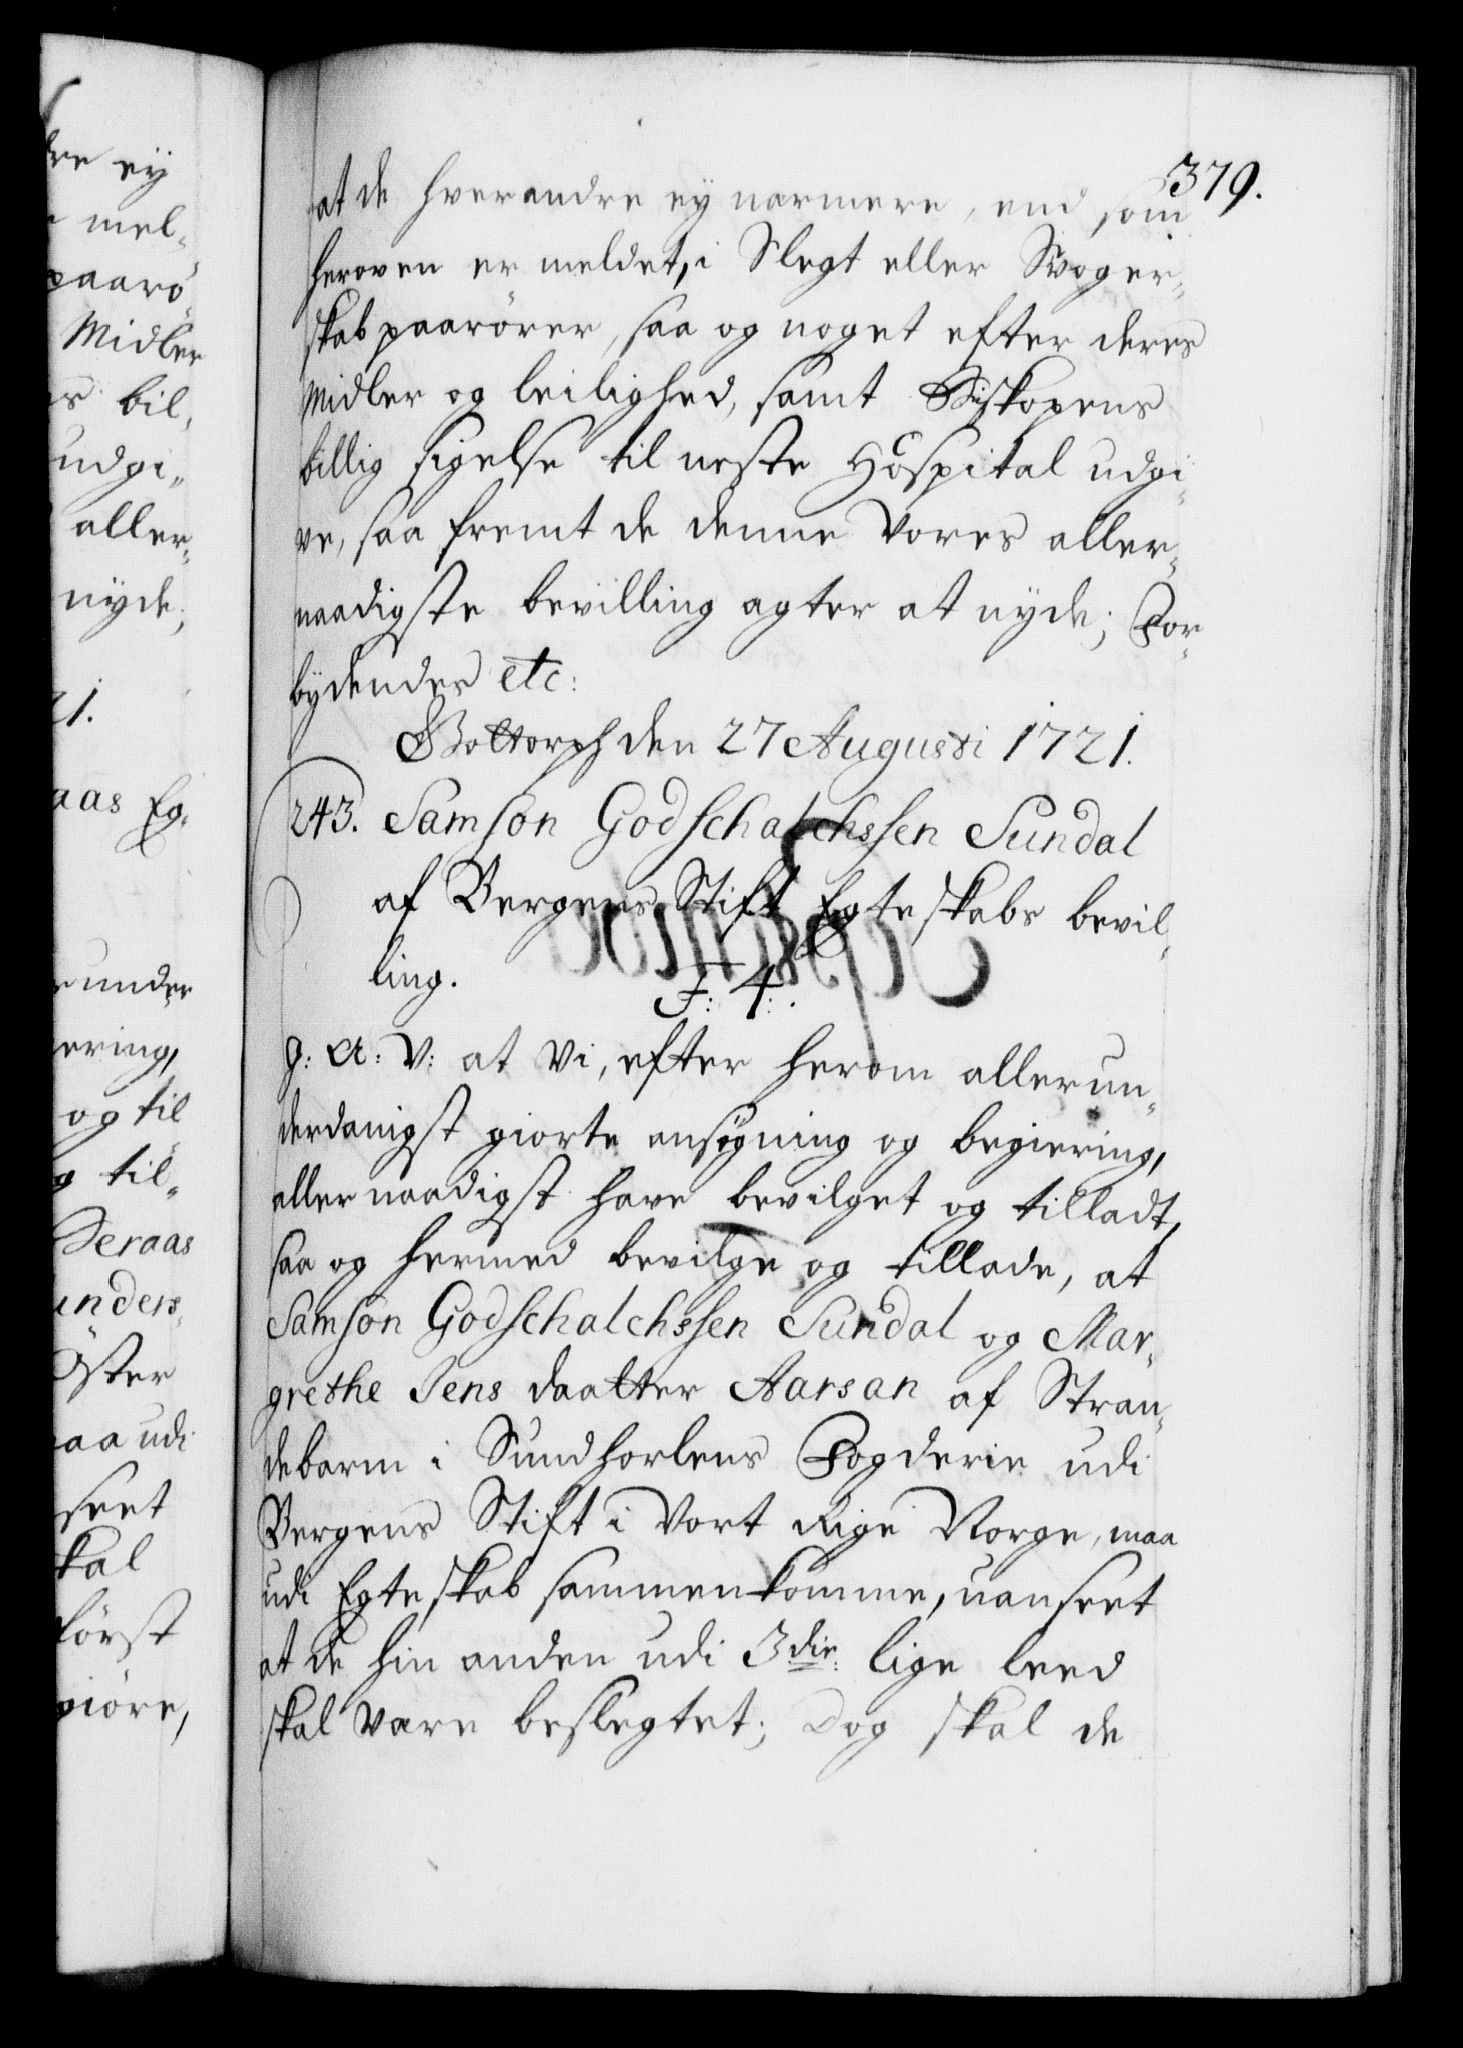 379.
at de hverandre ey nærmere, end som
heroven er meldet, i Slegt eller Svoger„
skab paarörer, saa og noget efter deres
Midler og leilighed, samt Biskopens
billig sigelse til neste Hospital udgi„
ve, saa fremt de denne Vores aller„
naadigste bevilling agter at nyde; For„
bydendes etc:
Gottorph den 27 Augusti 1721.
243. Samson Godschalchssen Sundal
af Bergens Stift Egteskabs bevil„
ling.
F: 4:.
G: A: V: at Vi, efter herom allerun„
derdanigst giorte ansøgning og begiering,
allernaadigst have bevilget og tilladt,
saa og hermed bevilge og tillade, at
Samson Godschalchssen Sundal og Mar„
grethe Jens daatter Aarsan af Stran„
debarm i Sundhorlens Fogderie udi
Bergens Stift i Vort Rige Norge, maa
udi Egteskab sammenkomme, uanseet
at de hin anden udi 3die: lige leed
skal være beslegtet; Dog skal de
dre ey
mel„
paarö„
Midler
bil„
udgi„
aller„
nyde;
21.
aas Eg„
runder
ering,
og til
til„
Seraas
Öster
maa udi
seet
skal
först
giöre,